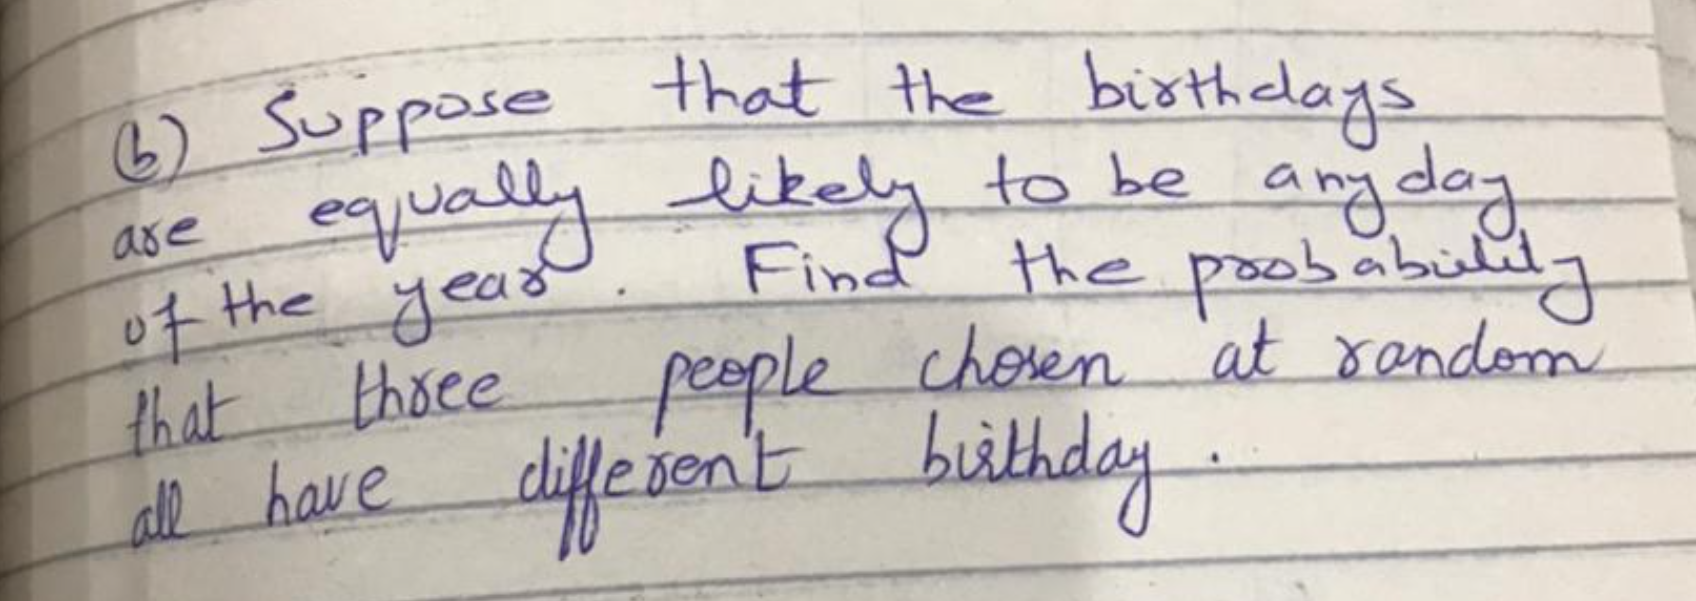 (b) Suppose that the birthdays
are equally likely to be any day
of the year. Find the probability
that three people chosen at random
all have different birthday.